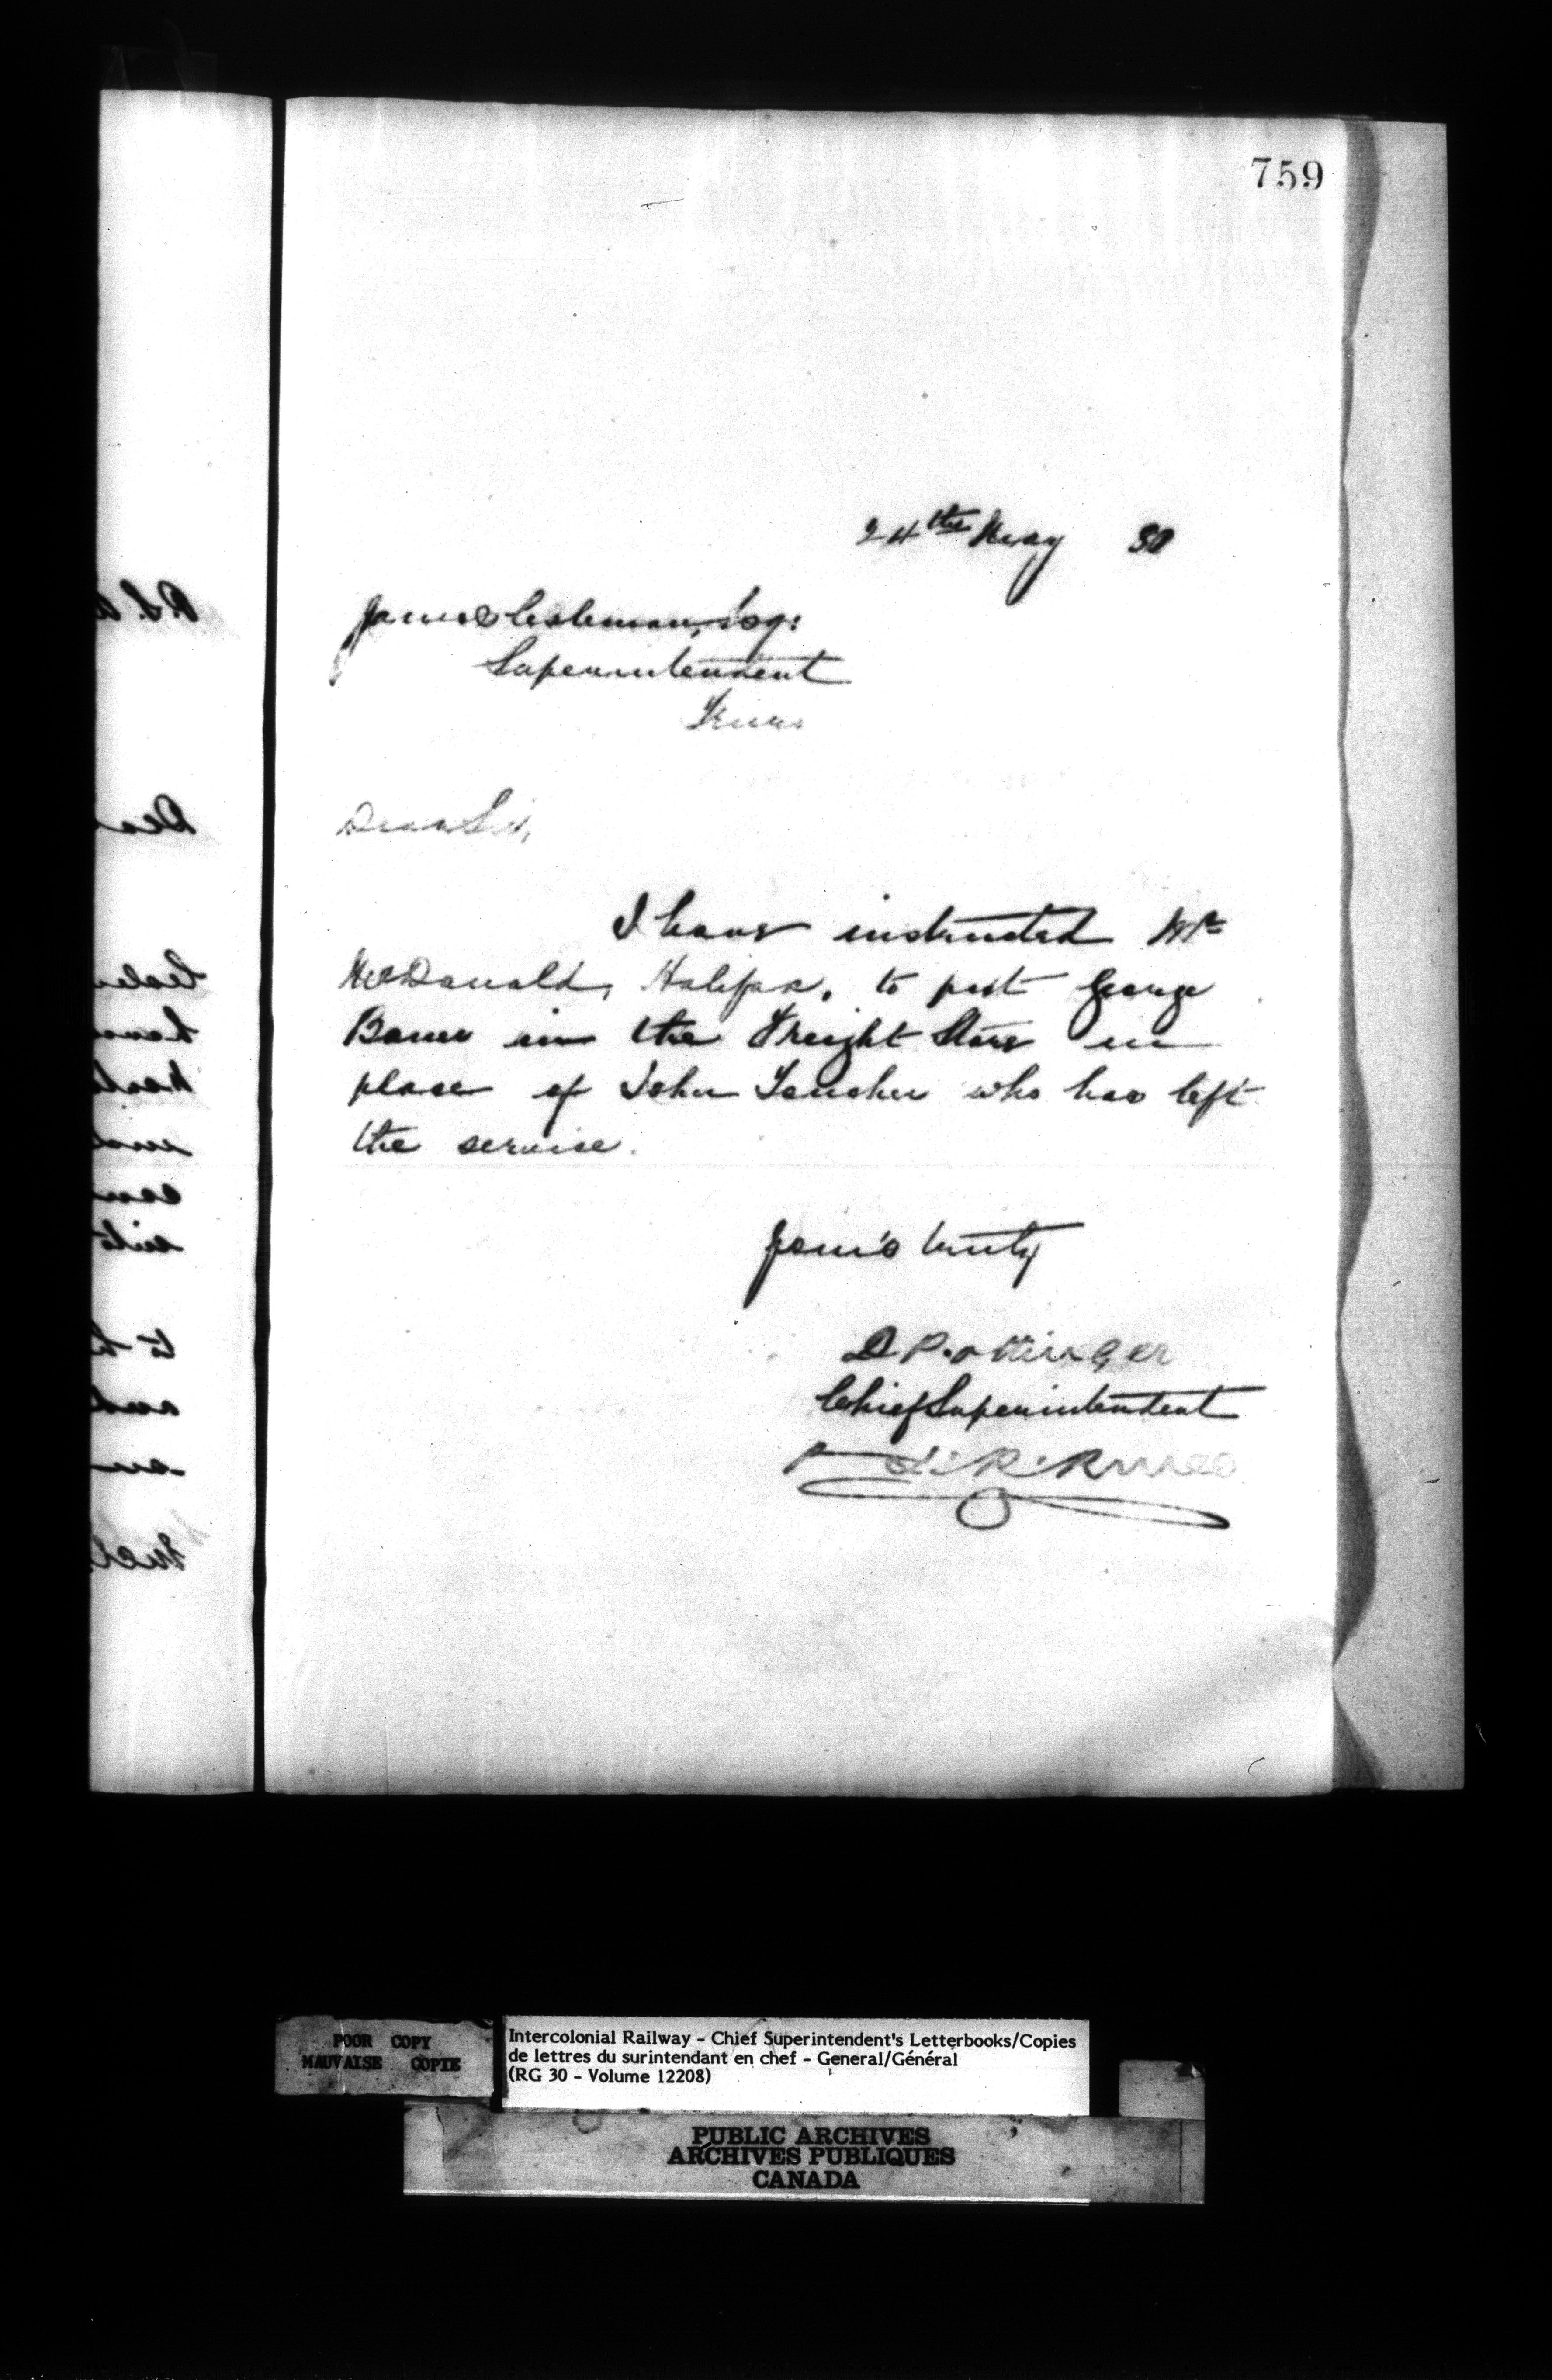 759
24th May 80
James Coleman, Esq:
Superintendent
Truro
Dear Sir,
I have instructed Mr
McDonald, Halifax, to put George
Bauer in the Freight Store in
place of John Toucher who has left
the service.
Yours truly
D Pottinger
Chief Superintendent
POOR COPY
MAUVAISE COPIE
Intercolonial Railway - Chief Superintendent's Letterbooks/Copies
de lettres du surintendant en chef - General/Général
(RG 30 - Volume 12208)
PUBLIC ARCHIVES
ARCHIVES PUBLIQUES
CANADA